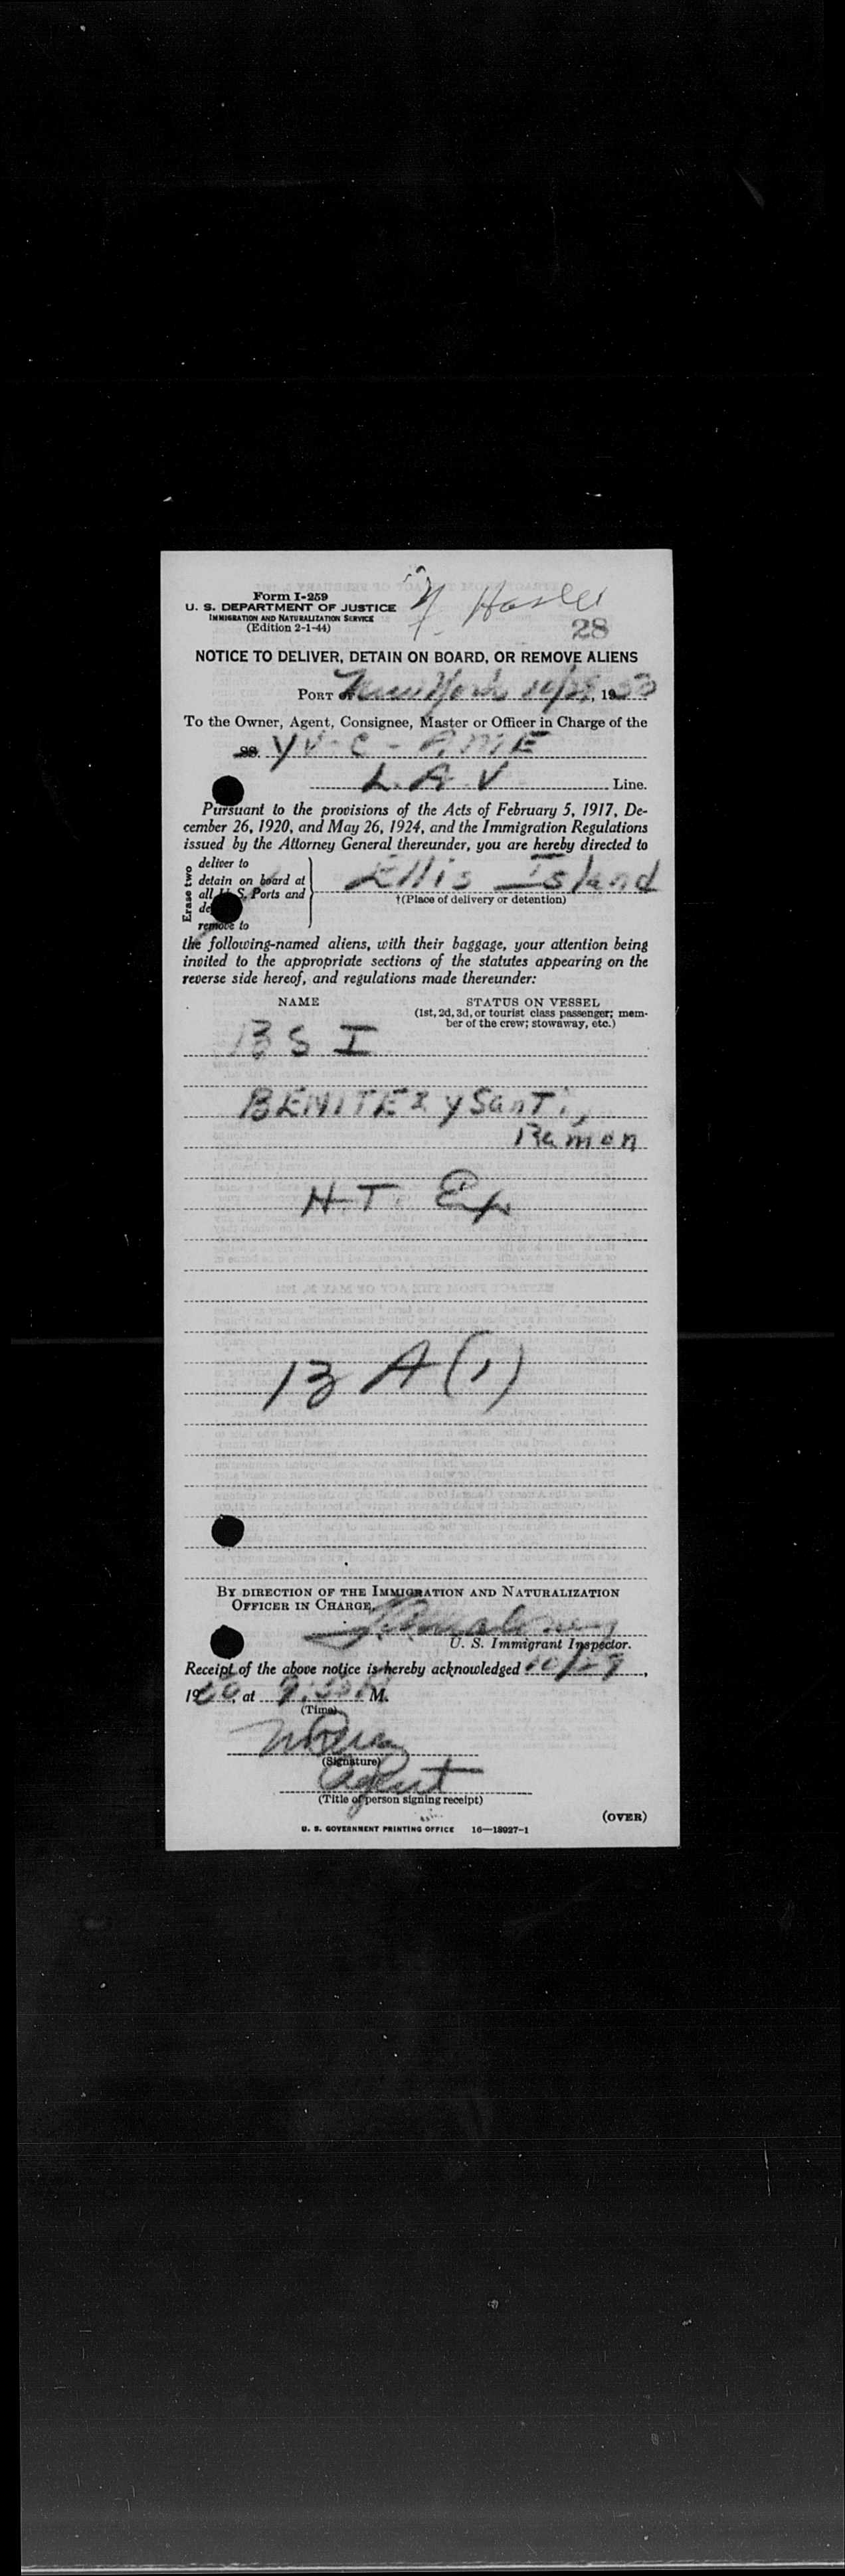 Form I-259
U. S. DEPARTMENT OF JUSTICE
IMMIGRATION AND NATURALIZATION SERVICE
(Edition 2-1-44)
28
NOTICE TO DELIVER, DETAIN ON BOARD, OR REMOVE ALIENS
PORT OF New York 10/29, 19
To the Owner, Agent, Consignee, Master or Officer in Charge of the
SS. YV-C-AME
L.A.V. Line.
Pursuant to the provisions of the Acts of February 5, 1917, De-
cember 26, 1920, and May 26, 1924, and the Immigration Regulations
issued by the Attorney General thereunder, you are hereby directed to
Erase two
deliver to
detain on board at
all U. S. Ports and
remove to
Ellis Island
†(Place of delivery or detention)
the following-named aliens, with their baggage, your attention being
invited to the appropriate sections of the statutes appearing on the
reverse side hereof, and regulations made thereunder:
NAME STATUS ON VESSEL
(1st, 2d, 3d, or tourist class passenger; mem-
ber of the crew; stowaway, etc.)
B S I
BENITEZ y Santi,
Ramon
H.T.
13 A (1)
BY DIRECTION OF THE IMMIGRATION AND NATURALIZATION
OFFICER IN CHARGE,
U. S. Immigrant Inspector.
Receipt of the above notice is hereby acknowledged 10/29,
19, at M.
(Time)
(Signature)
Agent
(Title of person signing receipt)
(OVER)
U. S. GOVERNMENT PRINTING OFFICE 16—18927-1